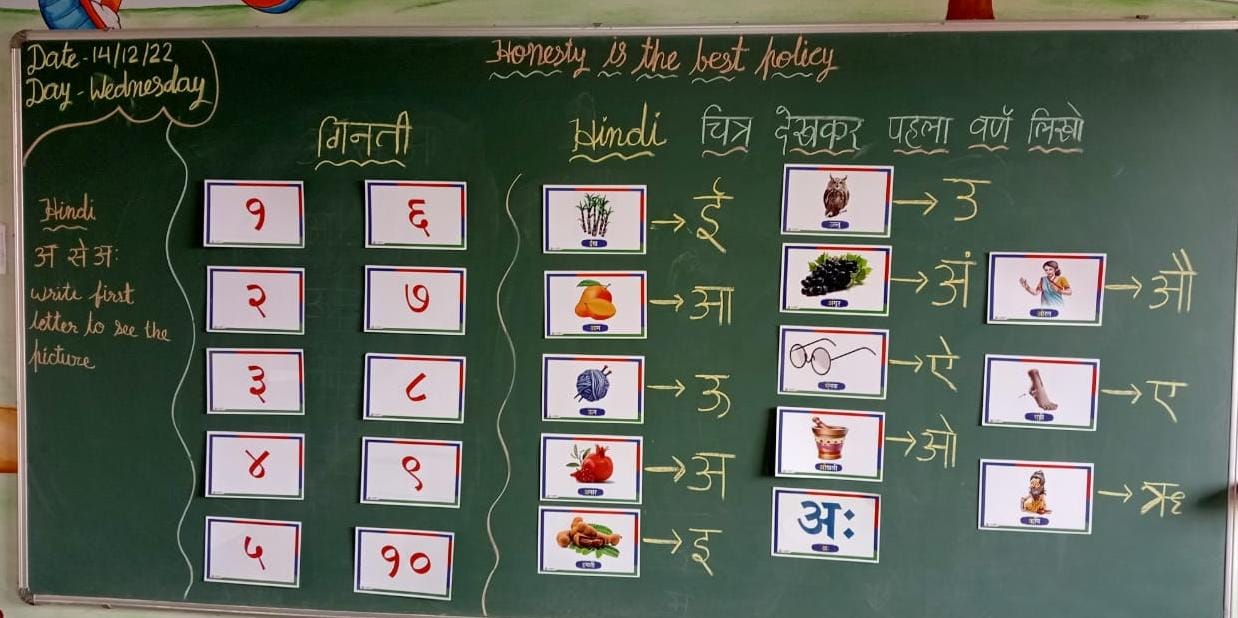 Date-14/12/22
Day-Wednesday
Honesty is the best policy
Hindi
अ से अः
write first
letter to see the
picture
गिनती
१
२
३
४
५
६
७
८
९
१०
Hindi चित्र देखकर पहला वर्ण लिखो
ईख → ई
आम → आ
ऊन → ऊ
अनार → अ
इमली → इ
उल्लू → उ
अंगूर → अं
ऐनक → ऐ
ओखली → ओ
अः
अः
औरत → औ
एड़ी → ए
ऋषि → ऋ